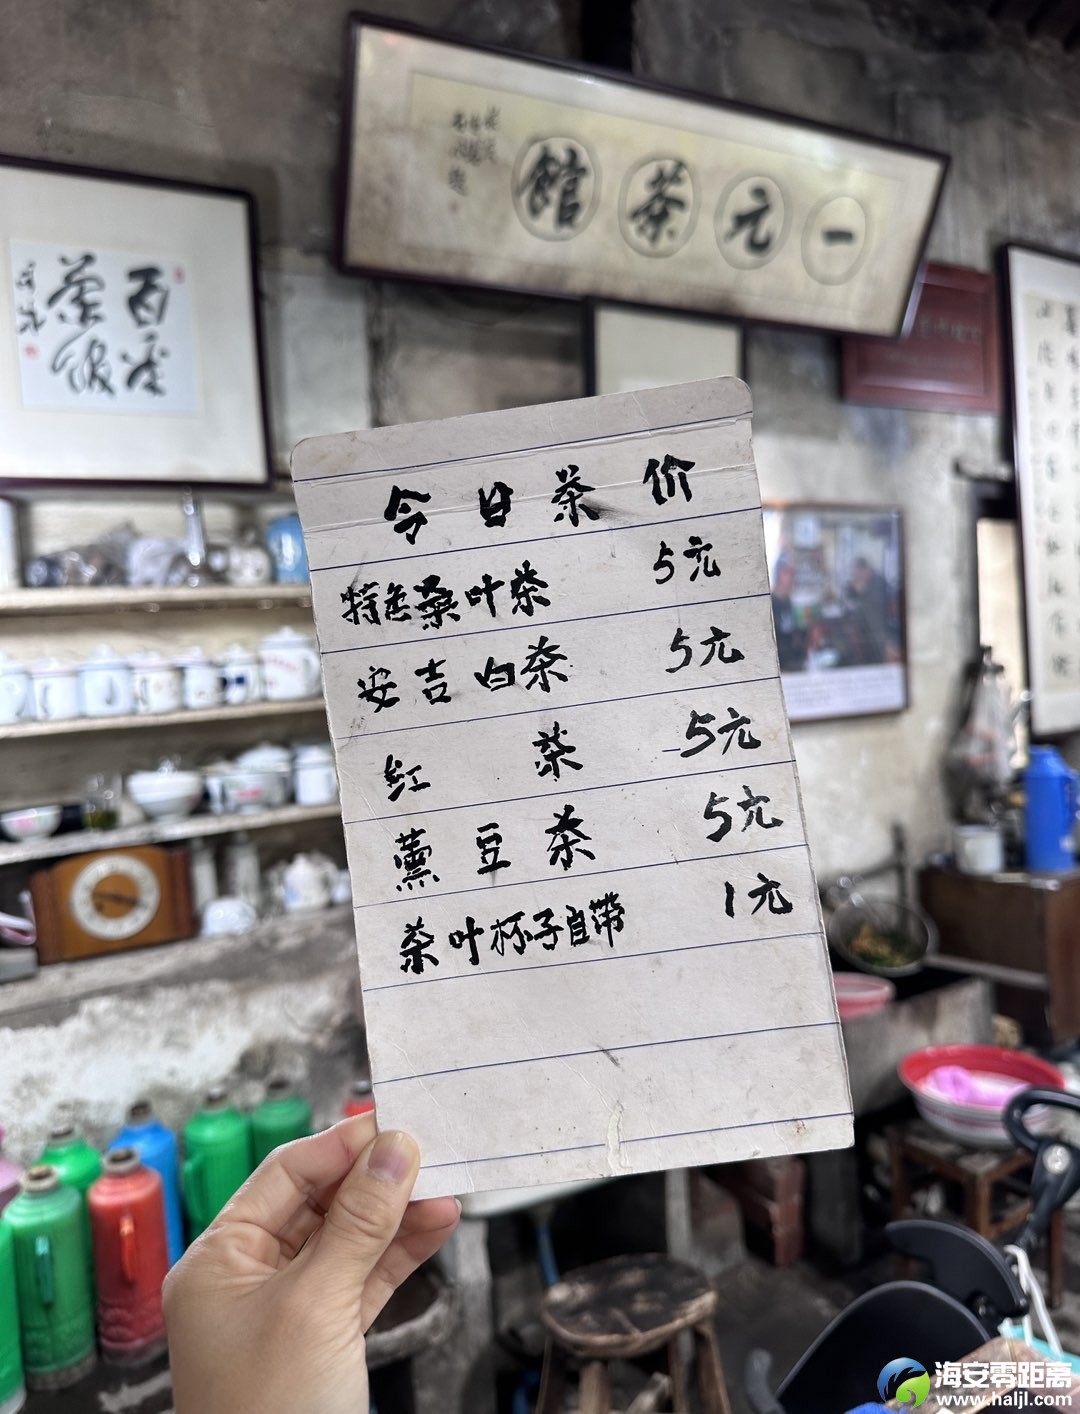 一元茶館
百年
茶馆
今日茶价
特色桑叶茶 5元
安吉白茶 5元
红茶 5元
薰豆茶 5元
茶叶杯子自带 1元
海安零距离
www.haljl.com